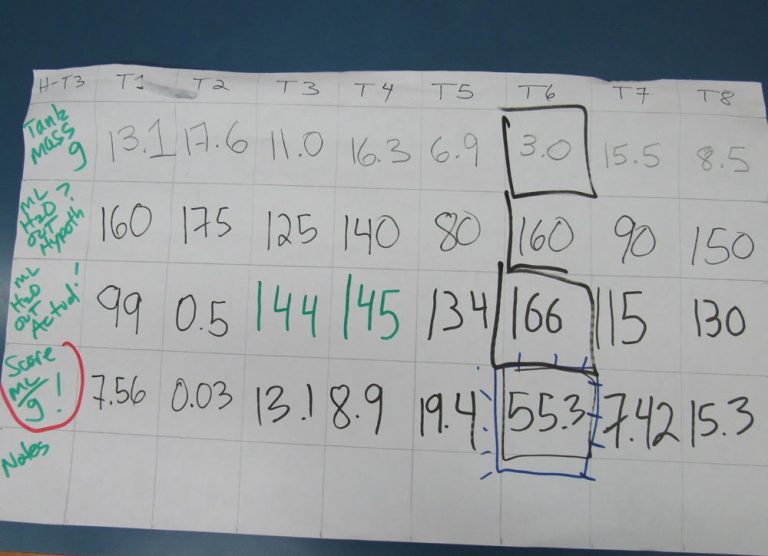 H-T3 T1 T2 T3 T4 T5 T6 T7 T8
Tank Mass g 13.1 17.6 11.0 16.3 6.9 3.0 15.5 8.5
mL H2O out Hypoth ? 160 175 125 140 80 160 90 150
mL H2O out Actual! 99 0.5 144 145 134 166 115 130
Score mL/g ! 7.56 0.03 13.1 8.9 19.4 55.3 7.42 15.3
Notes